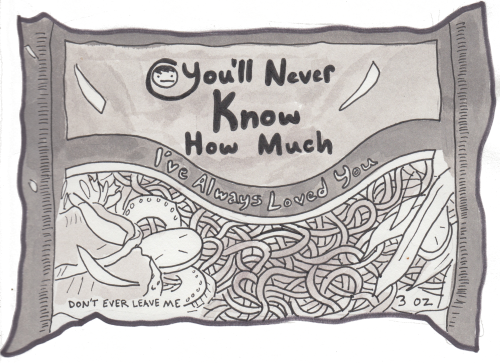 You'll Never
Know
How Much
I've Always Loved You
DON'T EVER LEAVE ME
3 OZ